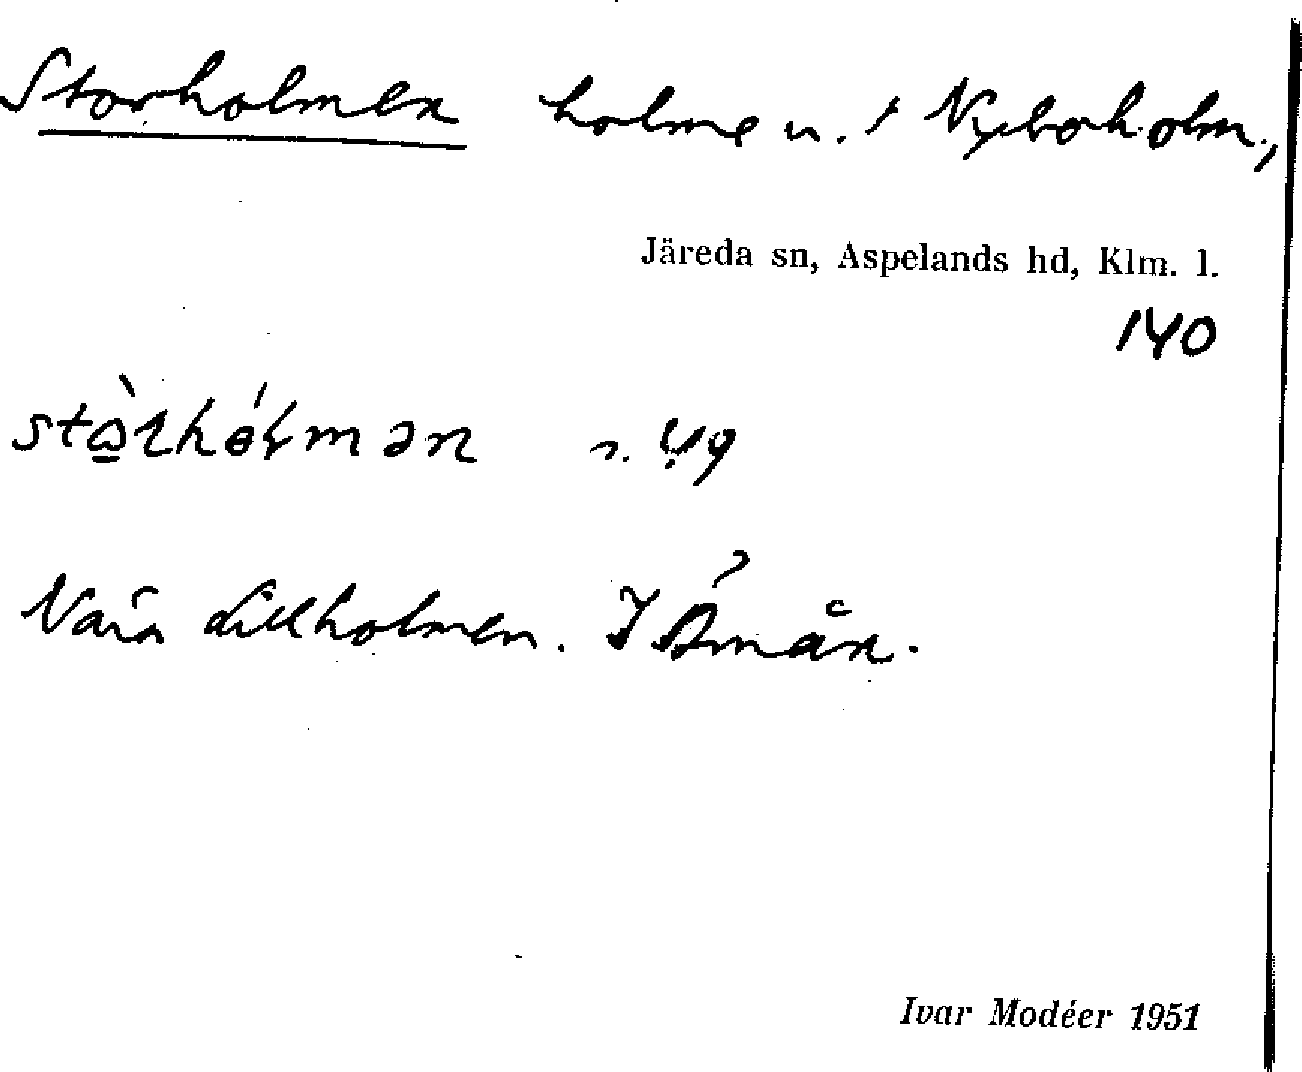 Storholmen holme u. t Nyboholm.,
Järeda sn, Aspelands hd, Klm. l.
140
n. 49
Nära Lillholmen. I Åmån.
Ivar Modéer 1951